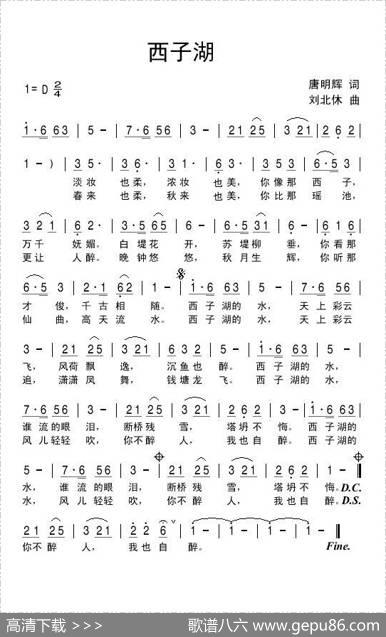 西子湖
1=D 2/4
唐明辉 词
刘北休 曲
i·6 63 | 5 - | 7·6 56 | 3 - | 21 25 | 3 21 | 2 6 2 |
1 - ) | 3 5· | 3 6· | 3 i· | 3 6· | 5 35 | 6 i· | 6·5 3 |
淡妆 也柔, 浓妆 也美, 你像那 西子,
春来 也柔, 秋来 也美, 你比那 瑶池,
万千 妩媚。 白堤花 开, 苏堤柳 垂, 你看那
更让 人醉。 晚钟悠 悠, 秋月生 辉, 你听那
6·5 3 | 2·1 6 2 | 1 - | i·6 63 | 5 - | 7·6 56 |
才俊, 千古相 随。 西子湖的 水, 天上彩云
仙曲, 高天流 水。 西子湖的 水, 天上彩云
3 - | 21 25 | 3 21 | 2 6 2 | 1 - | i·6 63 | 5 - |
飞, 风荷飘 逸, 沉鱼也 醉。 西子湖的 水,
追, 潇潇凤 舞, 钱塘龙 飞。 西子湖的 水,
7·6 56 | 3 - | 21 25 | 3 21 | 2 6 2 | 1 - | i·6 63 |
谁流的眼 泪, 断桥残 雪, 塔坍不 悔。 西子湖的
风儿轻轻 吹, 你不醉 人, 我也自 醉。 西子湖的
5 - | 7·6 56 | 3 - | 21 25 | 3 21 | 2 6 2 | 1 -
水, 谁流的眼 泪, 断桥残 雪, 塔坍不 悔。 D.C.
水, 风儿轻轻 吹, 你不醉 人, 我也自 醉。 D.S.
21 25 | 3 21 | 2 2 | 6 - | 1 - | 1 - | 1 - | 1 -
你不醉 人, 我也自 醉。 Fine.
高清下载 >>> 歌谱八六 www.gepu86.com